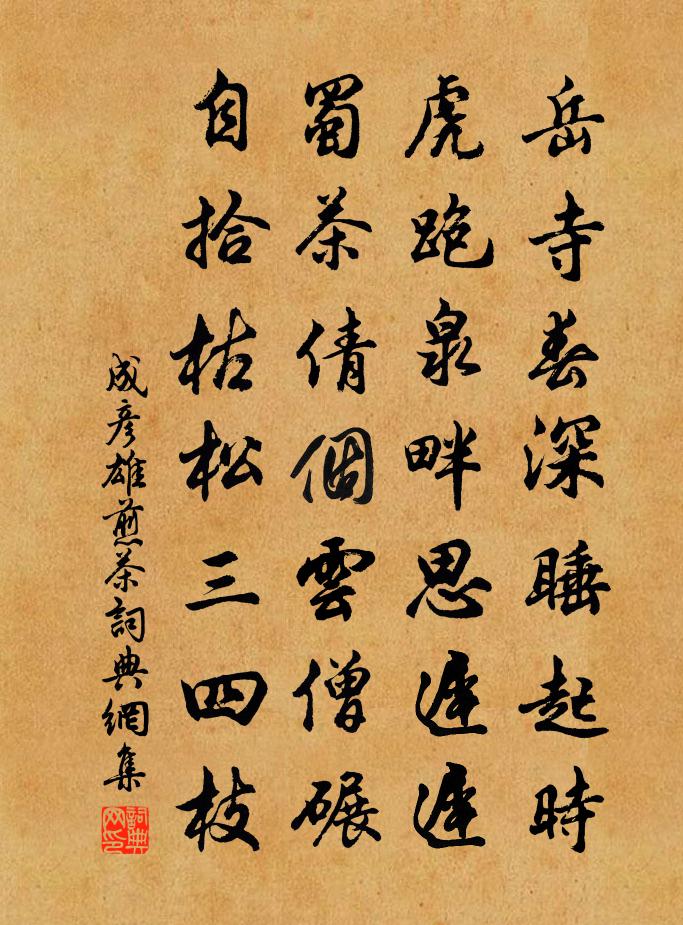 岳寺春深睡起時
虎跑泉畔思遲遲
蜀茶倩個雲僧碾
自拾枯松三四枝
成彥雄煎茶詞典網集
詞典网印